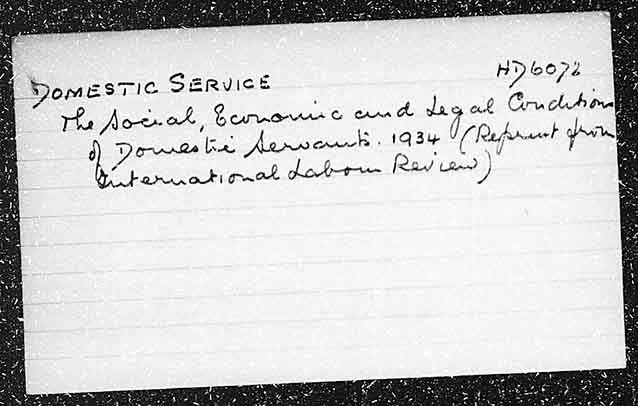 DOMESTIC SERVICE HD6072
The Social, Economic and Legal Conditions
of Domestic Servants. 1934 (Reprint from
International Labour Review)